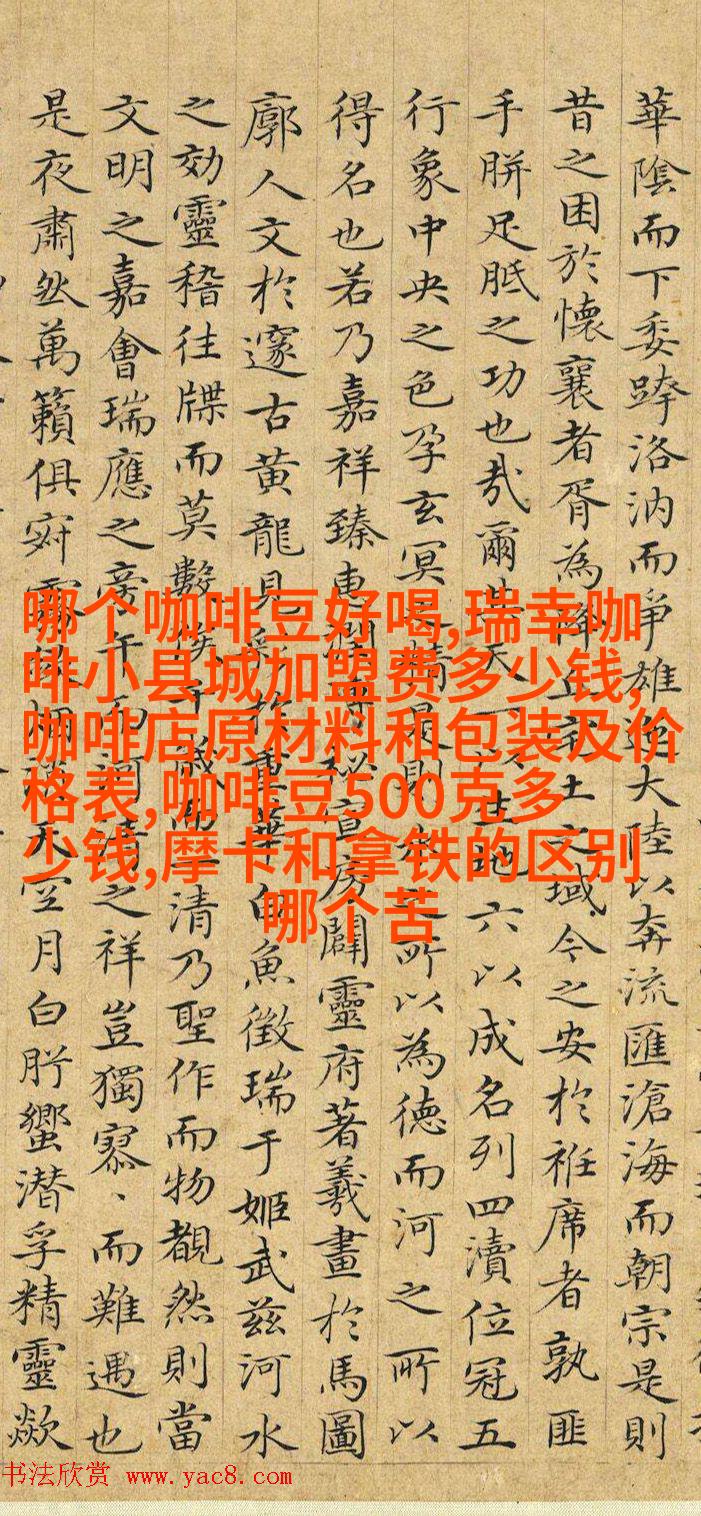 華陰而下委跨洛汭而爭雄大陸以奔流匯滄海而朝宗是則
昔之困於懷襄者胥為降丘宅土之域今之安於袵席者孰匪
手胼足胝之功也哉爾其天一以生地六以成名列四瀆位冠五
行象中央之色孕玄冥之精是則水之所以為德而河之所以
得名也若乃嘉祥臻惠秘宣房闢靈府著羲畫於馬圖
廓人文於邃古黃龍見彩於重華白魚徵瑞于姬武茲河水
之効靈稽往牒而莫數候千歲而一清乃聖作而物覩然則當
文明之嘉會瑞應之旁午而河清之祥豈獨寡、而難遇也
是夜肅然萬籟俱寂露天空月白肸蠁潜孚精靈歘
哪个咖啡豆好喝,瑞幸咖
啡小县城加盟费多少钱,
咖啡店原材料和包装及价
格表,咖啡豆500克多
少钱,摩卡和拿铁的区别
哪个苦
书法欣赏 www.yac8.com